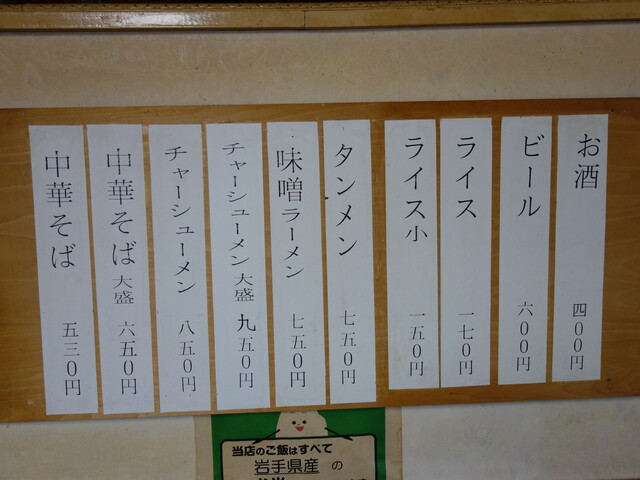 お酒 四〇〇円
ビール 六〇〇円
ライス 一七〇円
ライス小 一五〇円
タンメン 七五〇円
味噌ラーメン 七五〇円
チャーシューメン大盛 九五〇円
チャーシューメン 八五〇円
中華そば大盛 六五〇円
中華そば 五三〇円
当店のご飯はすべて
岩手県産の